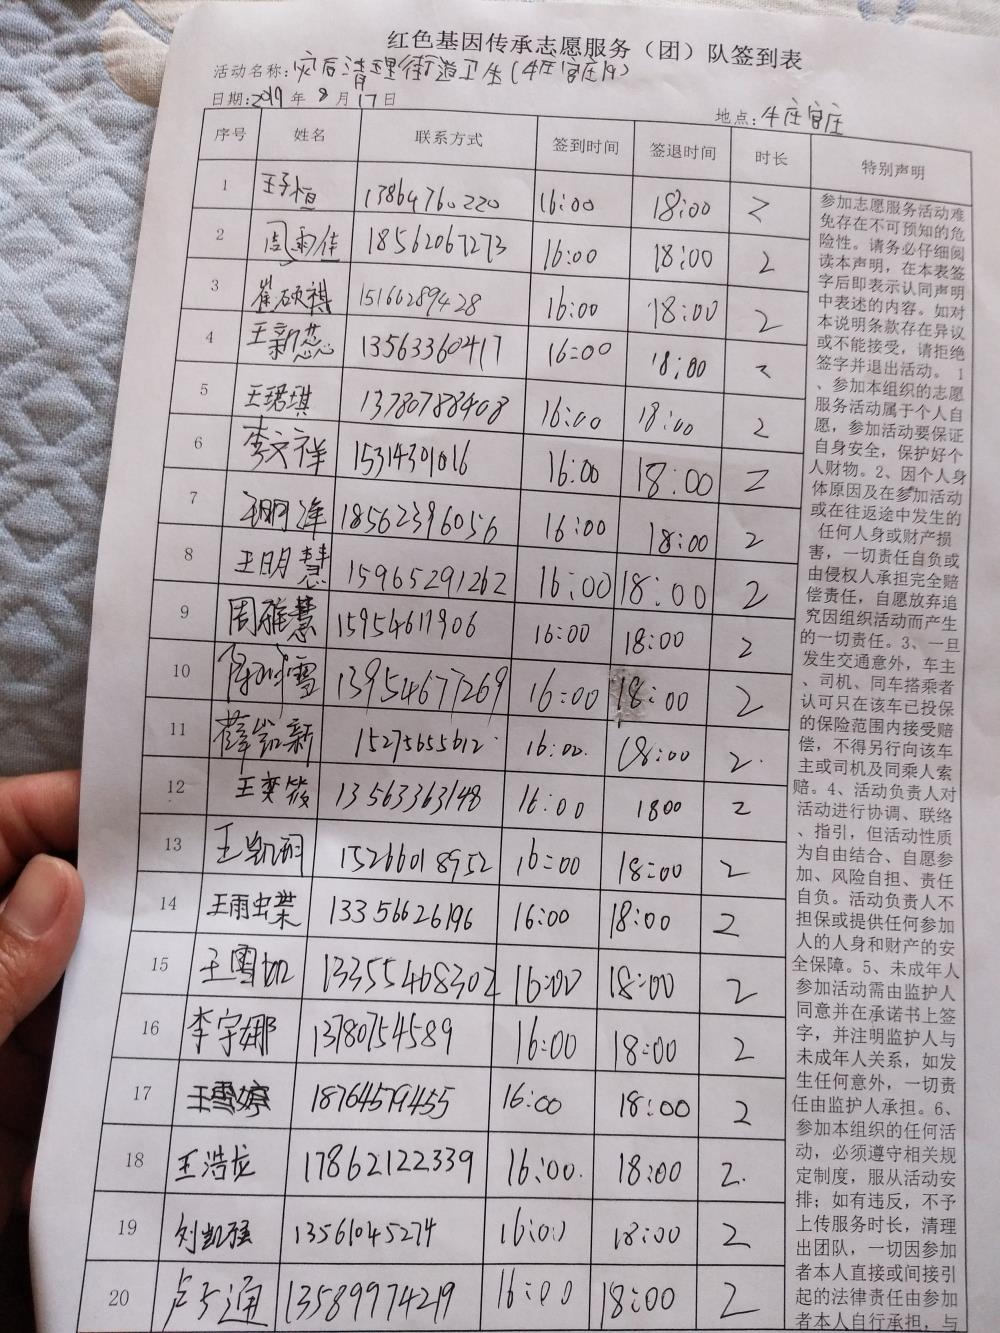 红色基因传承志愿服务（团）队签到表
活动名称：灾后清理街道卫生（牛庄官庄村）
日期：2019年8月17日
地点：牛庄官庄
序号 姓名 联系方式 签到时间 签退时间 时长 特别声明
1 王子恒 13864760220 16:00 18:00 2
2 周雨佳 18562067273 16:00 18:00 2
3 崔硕祺 15166289428 16:00 18:00 2
4 王新蕊 13563360417 16:00 18:00 2
5 王珺琪 13780788408 16:00 18:00 2
6 李文祥 15314301016 16:00 18:00 2
7 18562396056 16:00 18:00 2
8 王明慧 15965291262 16:00 18:00 2
9 周雅慧 15954611906 16:00 18:00 2
10 13954677269 16:00 18:00 2
11 15275655612 16:00 18:00 2
12 王奕 13563363148 16:00 1800 2
13 王凯 15266018952 16:00 18:00 2
14 王雨蝶 13356626196 16:00 18:00 2
15 王雪 13355468302 16:00 18:00 2
16 李宇娜 13780754589 16:00 18:00 2
17 王雪婷 18764579455 16:00 18:00 2
18 王浩龙 17862122339 16:00 18:00 2
19 刘凯强 13561045274 16:00 18:00 2
20 卢方通 13589974219 16:00 18:00 2
参加志愿服务活动难
免存在不可预知的危
险性。请务必仔细阅
读本声明，在本表签
字后即表示认同声明
中表述的内容。如对
本说明条款存在异议
或不能接受，请拒绝
签字并退出活动。1
、参加本组织的志愿
服务活动属于个人自
愿，参加活动要保证
自身安全，保护好个
人财物。2、因个人身
体原因及在参加活动
或在往返途中发生的
任何人身或财产损
害，一切责任自负或
由侵权人承担完全赔
偿责任，自愿放弃追
究因组织活动而产生
的一切责任。3、一旦
发生交通意外，车主
、司机、同车搭乘者
认可只在该车已投保
的保险范围内接受赔
偿，不得另行向该车
主或司机及同乘人索
赔。4、活动负责人对
活动进行协调、联络
、指引，但活动性质
为自由结合、自愿参
加、风险自担、责任
自负。活动负责人不
担保或提供任何参加
人的人身和财产的安
全保障。5、未成年人
参加活动需由监护人
同意并在承诺书上签
字，并注明监护人与
未成年人关系，如发
生任何意外，一切责
任由监护人承担。6、
参加本组织的任何活
动，必须遵守相关规
定制度，服从活动安
排；如有违反，不予
上传服务时长，清理
出团队，一切因参加
者本人直接或间接引
起的法律责任由参加
者本人自行承担，与